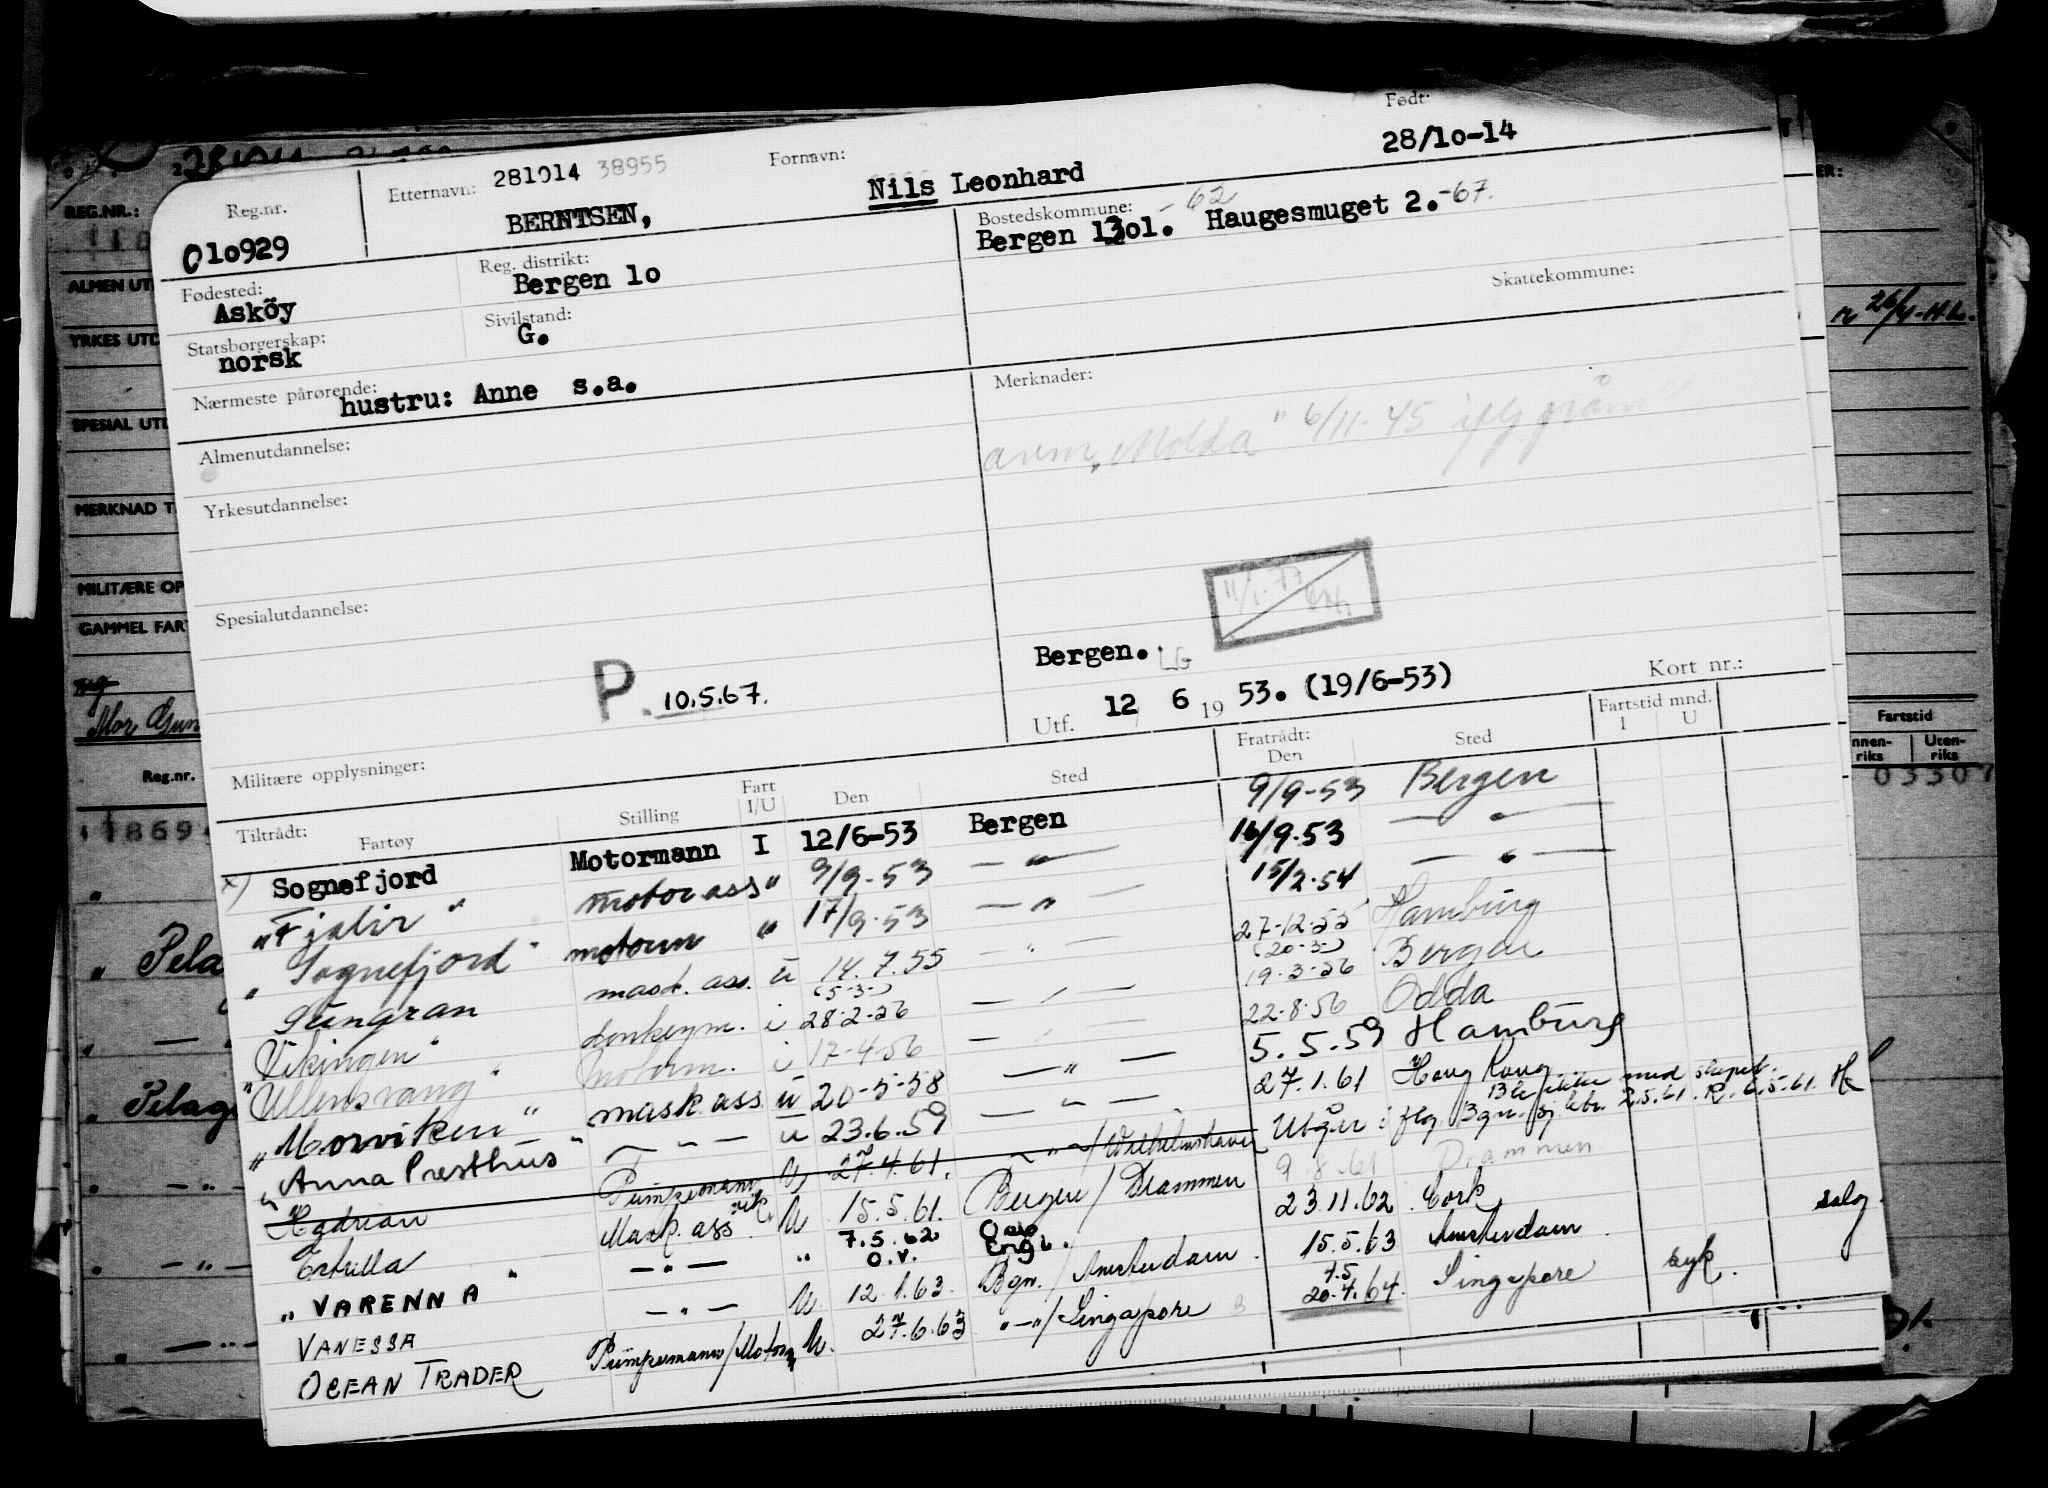 Reg.nr.
O1o929
Etternavn: 281014 38955
BERNTSEN,
Fornavn:
Nils Leonhard
Født:
28/1o-14
Fødested:
Asköy
Reg. distrikt:
Bergen 1o
Bostedskommune: -62
Bergen 13o1. Haugesmuget 2. -67.
Statsborgerskap:
norsk
Sivilstand:
G.
Skattekommune:
Nærmeste pårørende:
hustru: Anne s.a.
Merknader:
Almenutdannelse:
avm. "Molda" 6/11-45
Yrkesutdannelse:
Spesialutdannelse:
11/1-77
P. 10.5.67.
Bergen. LG
Utf. 12 6 19 53. (19/6-53)
Kort nr.:
Militære opplysninger:
Tiltrådt:
Fartøy
Stilling
Fart I/U
Den
Sted
Fratrådt:
Den
Sted
Fartstid mnd.
I U
x) Sognefjord Motormann I 12/6-53 Bergen 9/9-53 Bergen
"Fjalir" motor ass " 9/9-53 — " — 16/9.53 — " —
"Sognefjord" motorm " 17/9-53 — " — 15/2-54 — " —
"Gungran mask. ass. u 14.7.55 — " — 27-12-55 Hamburg
(5-3-) (20-3-)
"Vikingen" donkeym. i 28-2-56 — " — 19-3-56 Bergen
"Ullensvang" Motorm. i 17-4-56 — " — 22-8-56 Odda
"Morviken" mask ass u 20-5-58 — " — 5.5.59 Hamburg
"Anna Presthus" — " — u 23.6.59 — " — 27.1.61 Hong Kong
Hadrian Pumpemann U 27.4.61. — " — / Wilhelmshaven Utgår i flg. Bgn. 2.5.61. R. 6.5.61. H
Ble ikke med skipet.
Estrella Mask. ass U 15.5.61. Bergen / Drammen 9.8.61 Drammen
"VARENNA" — " — " 7.5.62 23.11.62 Cork solg
o.v.
VANESSA — " — U 12.1.63. Bgn. / Amsterdam 15.5.63 Amsterdam
4.5
OCEAN TRADER Pumpemann/Motorm U. 27.6.63 " — " / Singapore 20.4.64. Singapore syk.
REG.NR.:
ALMEN UT
YRKES UTD
SPESIAL UTD
MERKNAD T
MILITÆRE OP
GAMMEL FART
Reg.nr.
1869
Pela
Pelag
ER:
Fartstid
nnen-riks
Uten-riks
03307